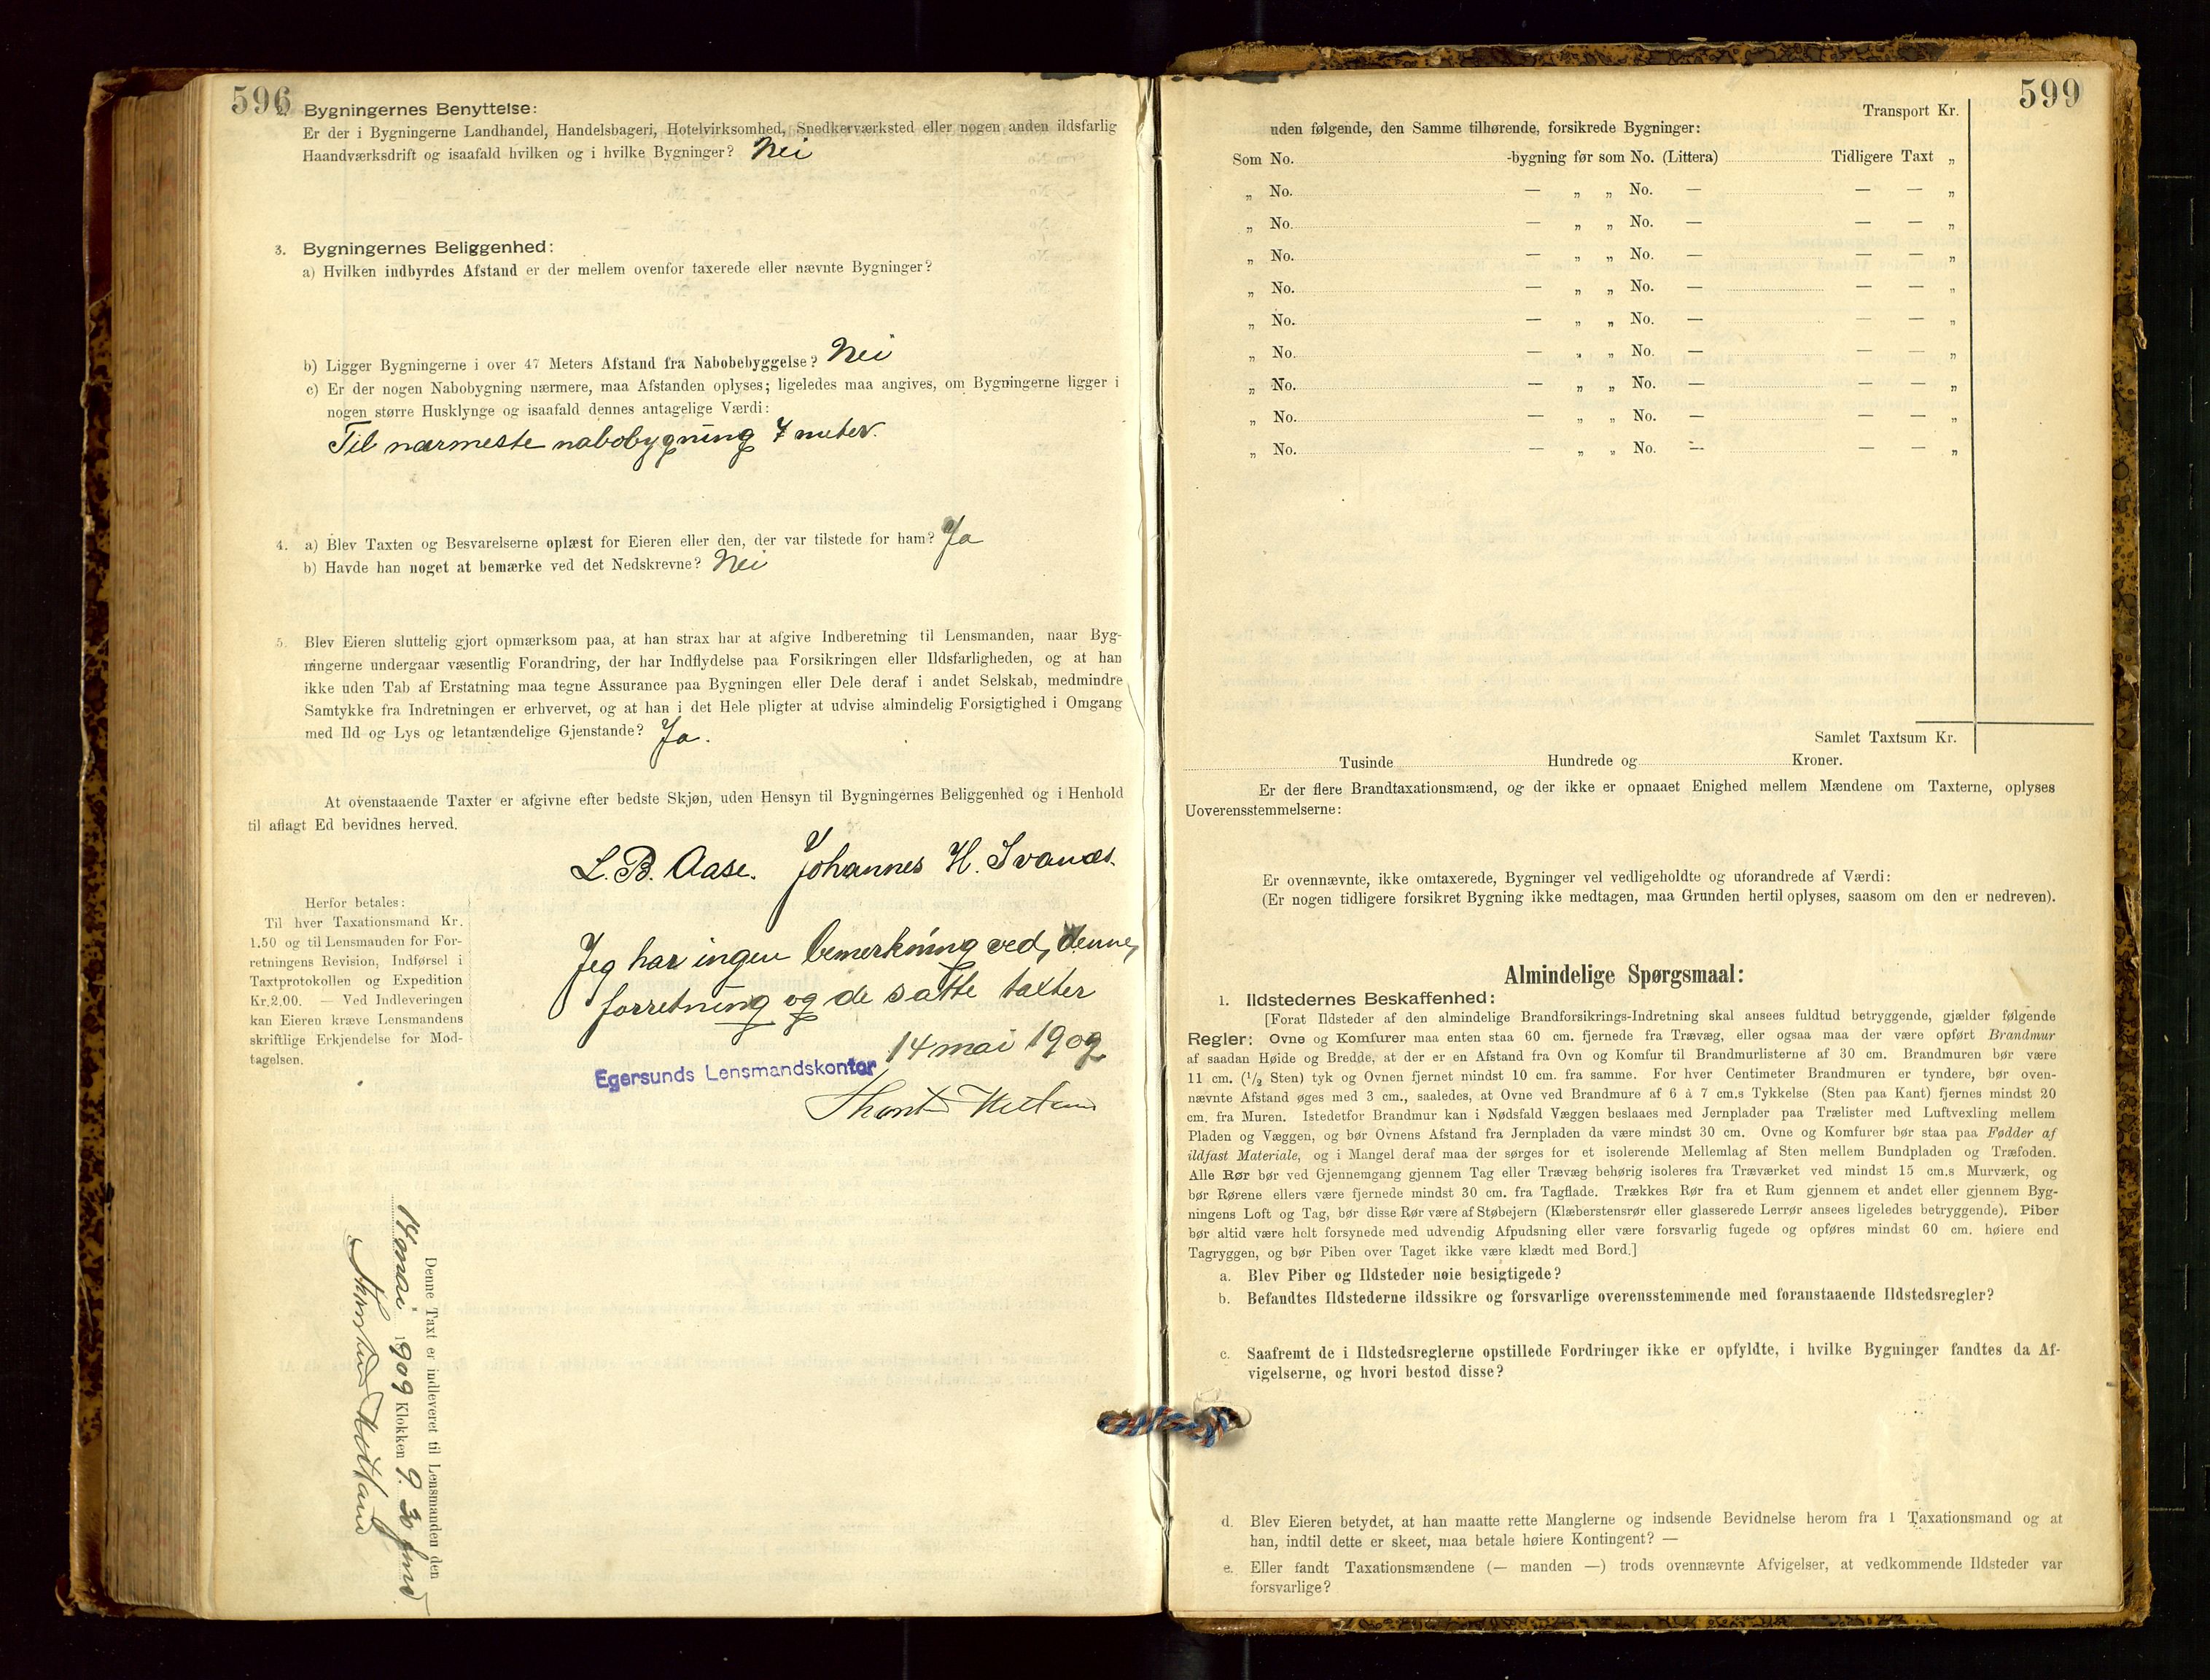 596
2. Bygningernes Benyttelse:
Er der i Bygningerne Landhandel, Handelsbageri, Hotelvirksomhed, Snedkerværksted eller nogen anden ildsfarlig
Haandværksdrift og isaafald hvilken og i hvilke Bygninger? Nei
3. Bygningernes Beliggenhed:
a) Hvilken indbyrdes Afstand er der mellem ovenfor taxerede eller nævnte Bygninger?
b) Ligger Bygningerne i over 47 Meters Afstand fra Nabobebyggelse? Nei
c) Er der nogen Nabobygning nærmere, maa Afstanden oplyses; ligeledes maa angives, om Bygningerne ligger i
nogen større Husklynge og isaafald dennes antagelige Værdi:
Til nærmeste nabobygning 7 meter.
4. a) Blev Taxten og Besvarelserne oplæst for Eieren eller den, der var tilstede for ham? Ja
b) Havde han noget at bemærke ved det Nedskrevne? Nei
5. Blev Eieren sluttelig gjort opmærksom paa, at han strax har at afgive Indberetning til Lensmanden, naar Byg-
ningerne undergaar væsentlig Forandring, der har Indflydelse paa Forsikringen eller Ildsfarligheden, og at han
ikke uden Tab af Erstatning maa tegne Assurance paa Bygningen eller Dele deraf i andet Selskab, medmindre
Samtykke fra Indretningen er erhvervet, og at han i det Hele pligter at udvise almindelig Forsigtighed i Omgang
med Ild og Lys og letantændelige Gjenstande? Ja.
At ovenstaaende Taxter er afgivne efter bedste Skjøn, uden Hensyn til Bygningernes Beliggenhed og i Henhold
til aflagt Ed bevidnes herved.
L. B. Aase. Johannes H. Svanæs.
Herfor betales:
Til hver Taxationsmand Kr.
1.50 og til Lensmanden for For-
retningens Revision, Indførsel i
Taxtprotokollen og Expedition
Kr. 2.00. — Ved Indleveringen
kan Eieren kræve Lensmandens
skriftlige Erkjendelse for Mod-
tagelsen.
Jeg har ingen bemerkning ved denne
forretning og de satte taxter
14 mai 1909
Egersunds Lensmandskontor
Denne Taxt er indleveret til Lensmanden den
14 mai 1909 Klokken 9.30 fmd.
599
Transport Kr.
uden følgende, den Samme tilhørende, forsikrede Bygninger:
Som No. -bygning før som No. (Littera) Tidligere Taxt „
„ No. — „ „ No. — — — „
„ No. — „ „ No. — — — „
„ No. — „ „ No. — — — „
„ No. — „ „ No. — — — „
„ No. — „ „ No. — — — „
„ No. — „ „ No. — — — „
„ No. — „ „ No. — — — „
„ No. — „ „ No. — — — „
„ No. — „ „ No. — — — „
Samlet Taxtsum Kr.
Tusinde Hundrede og Kroner.
Er der flere Brandtaxationsmænd, og der ikke er opnaaet Enighed mellem Mændene om Taxterne, oplyses
Uoverensstemmelserne:
Er ovennævnte, ikke omtaxerede, Bygninger vel vedligeholdte og uforandrede af Værdi:
(Er nogen tidligere forsikret Bygning ikke medtagen, maa Grunden hertil oplyses, saasom om den er nedreven).
Almindelige Spørgsmaal:
1. Ildstedernes Beskaffenhed:
[Forat Ildsteder af den almindelige Brandforsikrings-Indretning skal ansees fuldtud betryggende, gjælder følgende
Regler: Ovne og Komfurer maa enten staa 60 cm. fjernede fra Trævæg, eller ogsaa maa der være opført Brandmur
af saadan Høide og Bredde, at der er en Afstand fra Ovn og Komfur til Brandmurlisterne af 30 cm. Brandmuren bør være
11 cm. (1/2 Sten) tyk og Ovnen fjernet mindst 10 cm. fra samme. For hver Centimeter Brandmuren er tyndere, bør oven-
nævnte Afstand øges med 3 cm., saaledes, at Ovne ved Brandmure af 6 à 7 cm.s Tykkelse (Sten paa Kant) fjernes mindst 20
cm. fra Muren. Istedetfor Brandmur kan i Nødsfald Væggen beslaaes med Jernplader paa Trælister med Luftvexling mellem
Pladen og Væggen, og bør Ovnens Afstand fra Jernpladen da være mindst 30 cm. Ovne og Komfurer bør staa paa Fødder af
ildfast Materiale, og i Mangel deraf maa der sørges for et isolerende Mellemlag af Sten mellem Bundpladen og Træfoden.
Alle Rør bør ved Gjennemgang gjennem Tag eller Trævæg behørig isoleres fra Træværket ved mindst 15 cm.s Murværk, og
bør Rørene ellers være fjernede mindst 30 cm. fra Tagflade. Trækkes Rør fra et Rum gjennem et andet eller gjennem Byg-
ningens Loft og Tag, bør disse Rør være af Støbejern (Klæberstensrør eller glasserede Lerrør ansees ligeledes betryggende). Piber
bør altid være helt forsynede med udvendig Afpudsning eller være forsvarlig fugede og opføres mindst 60 cm. høiere end
Tagryggen, og bør Piben over Taget ikke være klædt med Bord.]
a. Blev Piber og Ildsteder nøie besigtigede?
b. Befandtes Ildstederne ildssikre og forsvarlige overensstemmende med foranstaaende Ildstedsregler?
c. Saafremt de i Ildstedsreglerne opstillede Fordringer ikke er opfyldte, i hvilke Bygninger fandtes da Af-
vigelserne, og hvori bestod disse?
d. Blev Eieren betydet, at han maatte rette Manglerne og indsende Bevidnelse herom fra 1 Taxationsmand og at
han, indtil dette er skeet, maa betale høiere Kontingent? —
e. Eller fandt Taxationsmændene (— manden —) trods ovennævnte Afvigelser, at vedkommende Ildsteder var
forsvarlige?